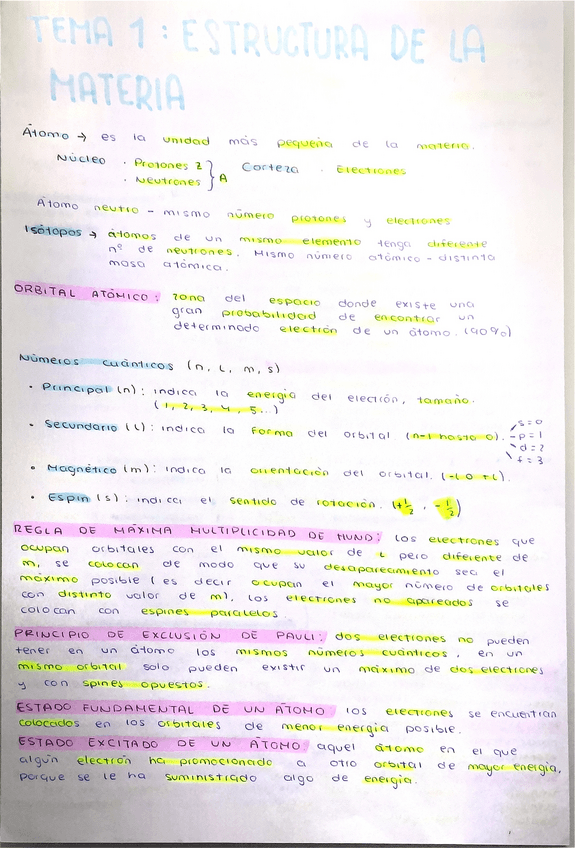 TEMA 1: ESTRUCTURA DE LA
MATERIA
Átomo → es la unidad más pequeña de la materia.
Núcleo · Protones Z } A Corteza · Electrones
· Neutrones
Átomo neutro - mismo número protones y electrones
Isótopos → átomos de un mismo elemento tenga diferente
nº de neutrones. Mismo número atómico - distinto
masa atómica.
ORBITAL ATÓMICO: zona del espacio donde existe una
gran probabilidad de encontrar un
determinado electrón de un átomo. (90%)
Números cuánticos (n, l, m, s)
· Principal (n): indica la energía del electrón, tamaño.
(1, 2, 3, 4, 5...)
· Secundario (l): indica la forma del orbital. (n-1 hasta 0).
s=0
p=1
d=2
f=3
· Magnético (m): indica la orientación del orbital. (-l 0 +l).
· Espin (s): indica el sentido de rotación. (+1/2, -1/2)
REGLA DE MÁXIMA MULTIPLICIDAD DE HUND: los electrones que
ocupan orbitales con el mismo valor de l pero diferente de
m, se colocan de modo que su desapareamiento sea el
máximo posible (es decir ocupan el mayor número de orbitales
con distinto valor de m), los electrones no apareados se
colocan con espines paralelos
PRINCIPIO DE EXCLUSIÓN DE PAULI: dos electrones no pueden
tener en un átomo los mismos números cuánticos, en un
mismo orbital solo pueden existir un máximo de dos electrones
y con spines opuestos.
ESTADO FUNDAMENTAL DE UN ÁTOMO los electrones se encuentran
colocados en los orbitales de menor energía posible.
ESTADO EXCITADO DE UN ÁTOMO aquel átomo en el que
algún electrón ha promocionado a otro orbital de mayor energía,
porque se le ha suministrado algo de energía.